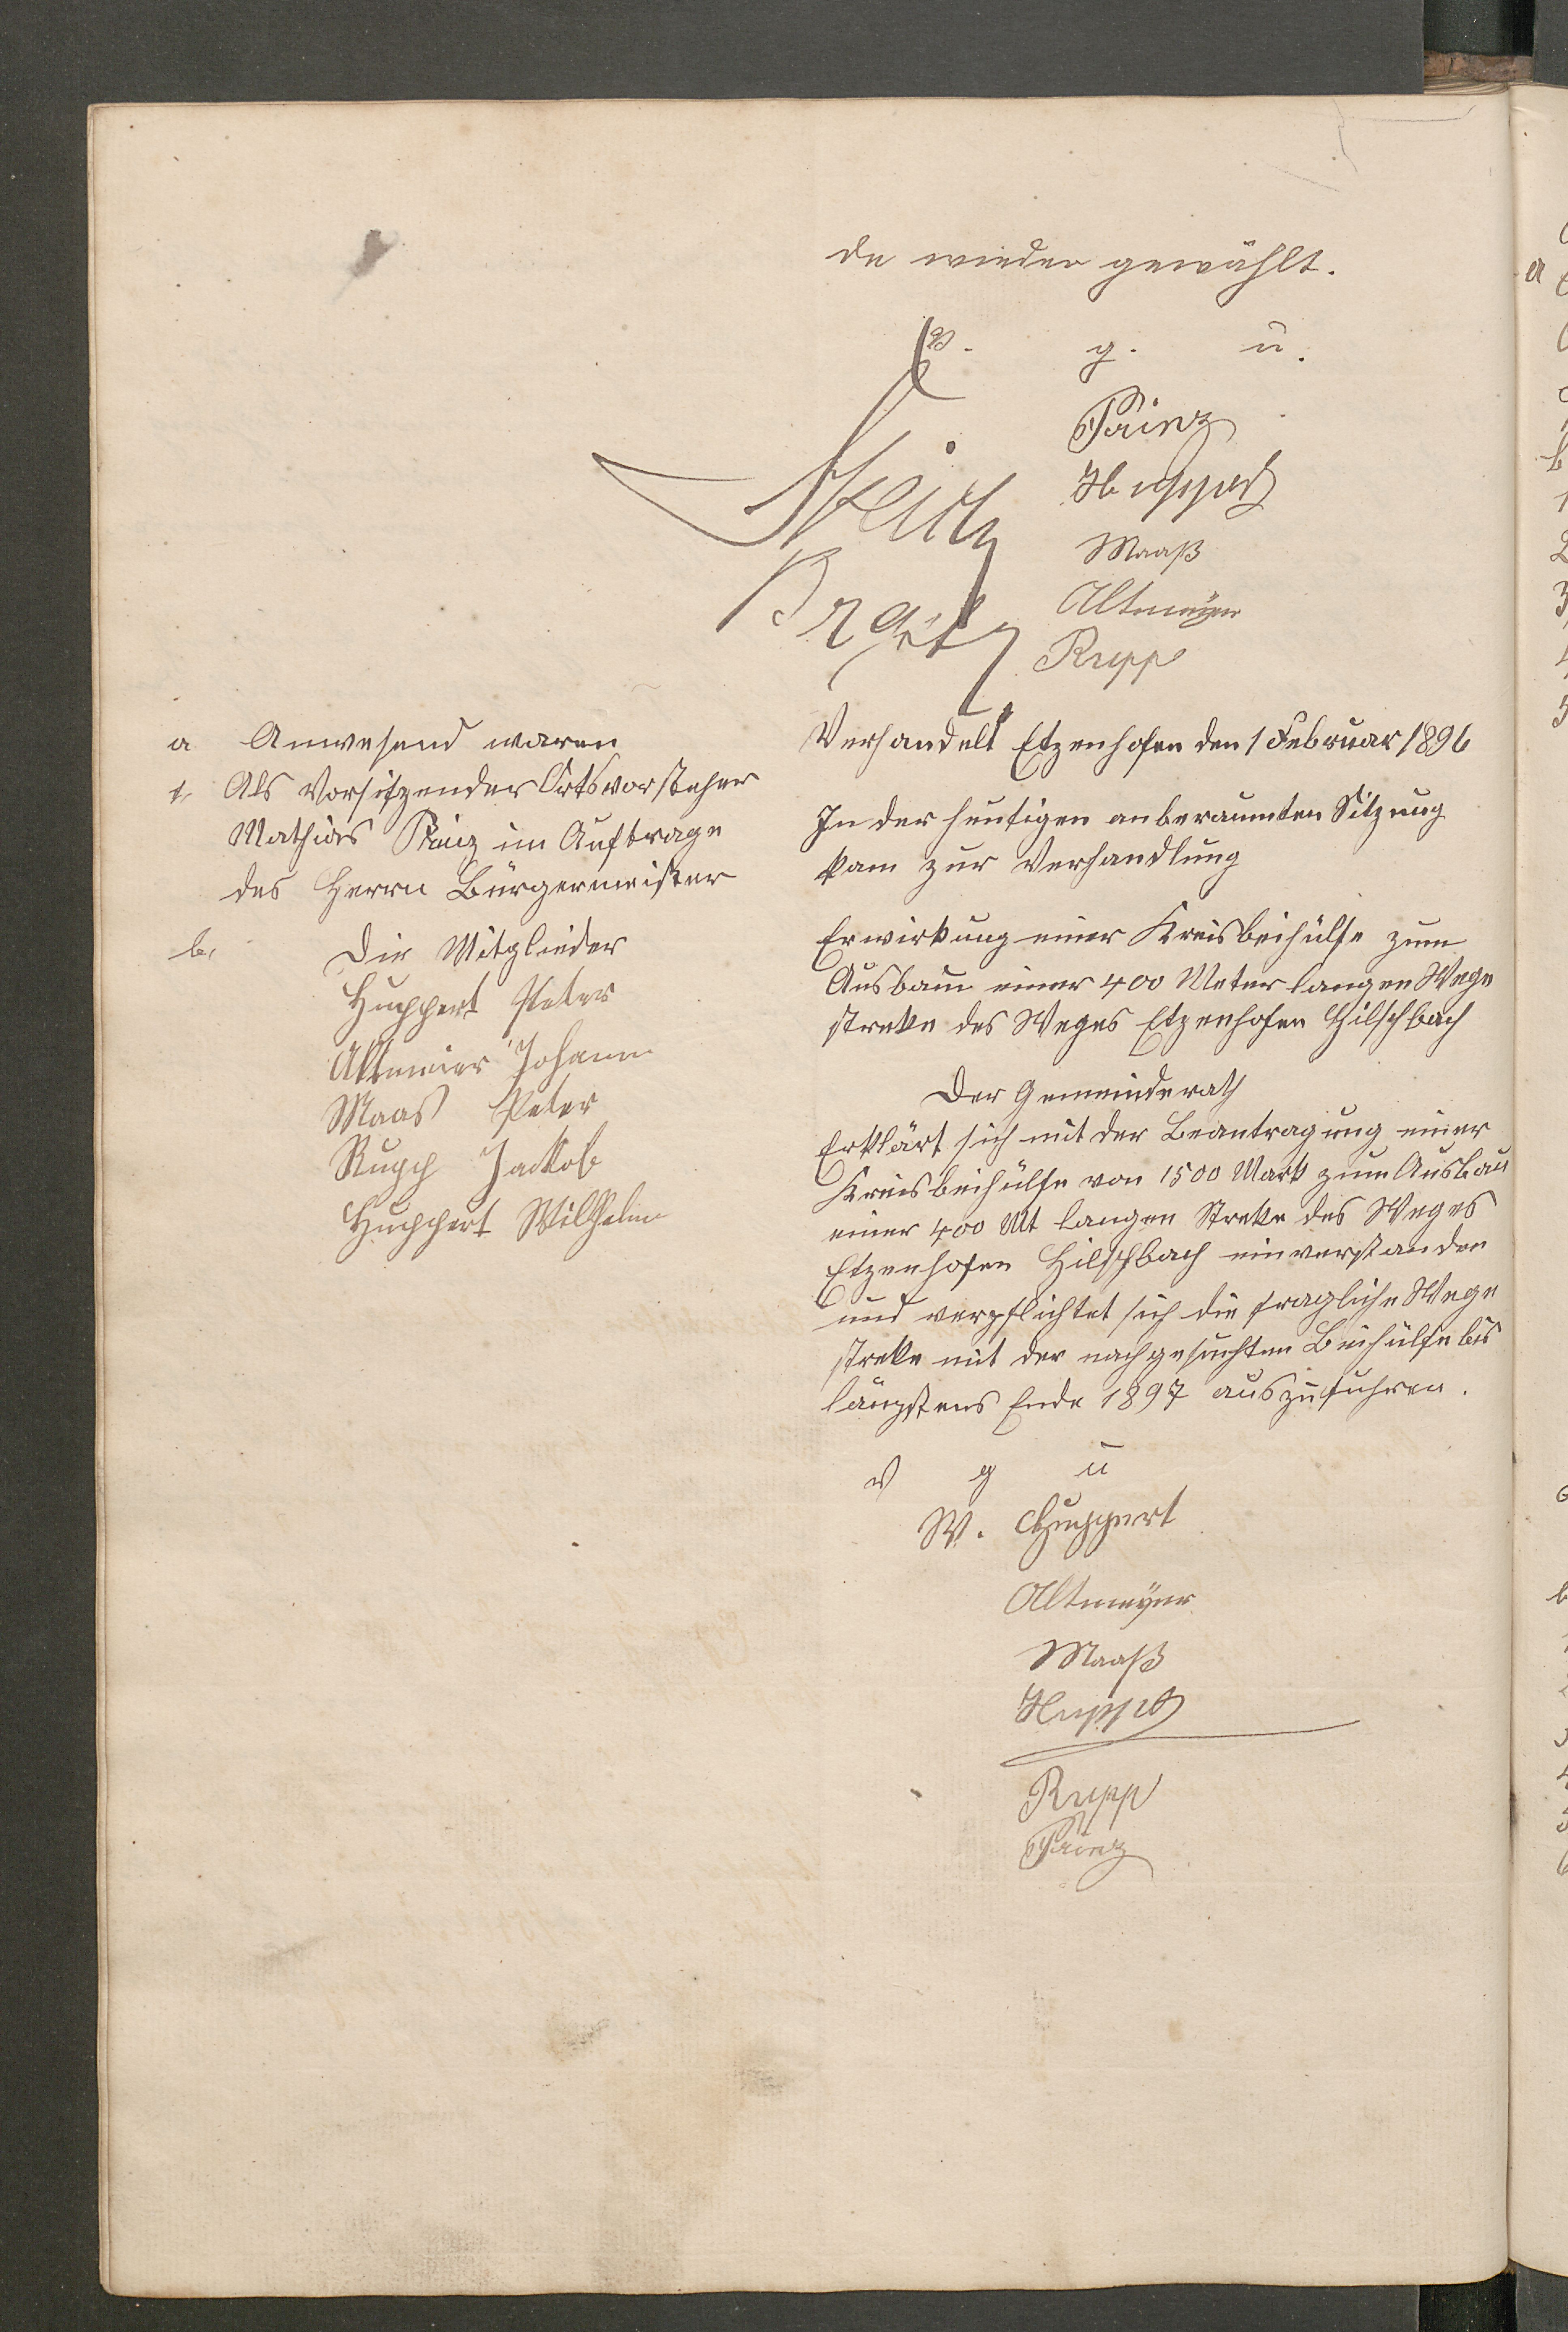 de wieder gewählt.
v. g. u.
Prinz
Huppert
Maaß
Altmeyer
Rupp
a Anwesend waren
1, Als Vorsitzender Ortsvorsteher
Mathias Prinz im Auftrage
des Herrn Bürgermeister
b, Die Mitglieder
Huppert Peter
Altmeier Johann
Maas Peter
Rupp Jackob
Huppert Wilhelm
Verhandelt Etzenhofen den 1 Februar 1896
In der heutigen anberaumten Sitzung
kam zur Verhandlung
Erwirkung einer Kreisbeihülfe zum
Ausbau einer 400 Meter langen Wege
streke des Weges Etzenhofen Hilschbach
Der Gemeinderath
Erklärt sich mit der Beantragung einer
Kreisbeihülfe von 1500 Mark zum Ausbau
einer 400 Mt langen Streke des Weges
Etzenhofen Hilschbach einverstanden
und verpflichtet sich die fragliche Wege
streke mit der nachgesuchten Beihülfe bis
längstens Ende 1897 auszufuhren.
v g u
W. Huppert
Altmeyer
Maaß
Huppert
Rupp
Prinz